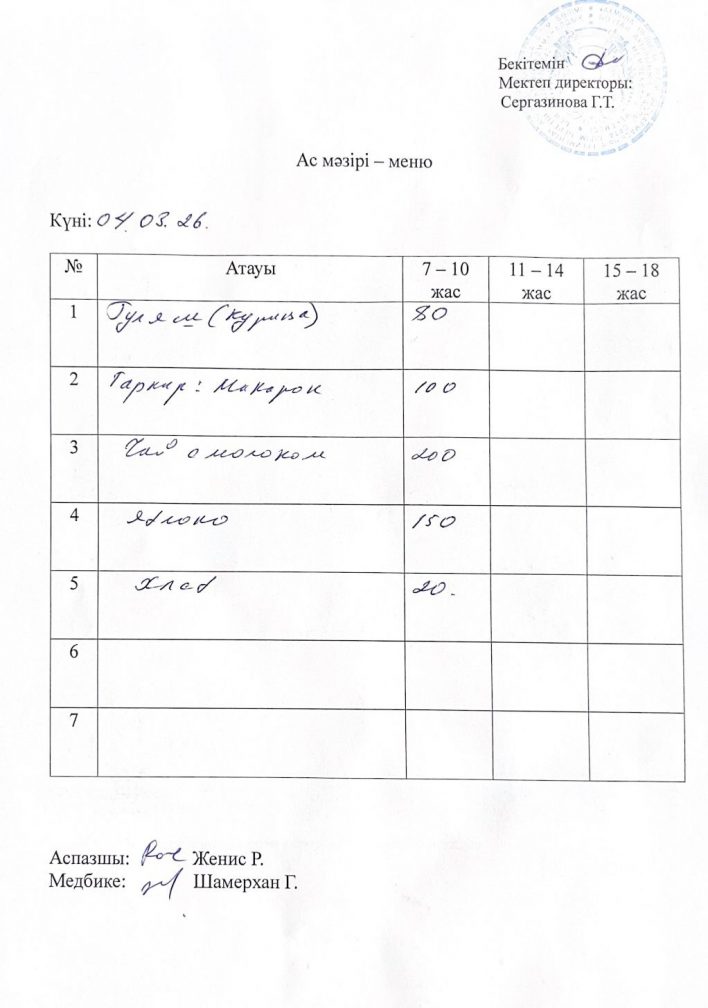 Бекітемін
Мектеп директоры:
Сергазинова Г.Т.
Ас мәзірі – меню
Күні: 04.03.26.
№ Атауы 7 – 10 жас 11 – 14 жас 15 – 18 жас
1 Гуляш (курица) 80
2 Гарнир: Макарон 100
3 Чай с молоком 200
4 Яблоко 150
5 Хлеб 20.
6
7
Аспазшы: Женис Р.
Медбике: Шамерхан Г.